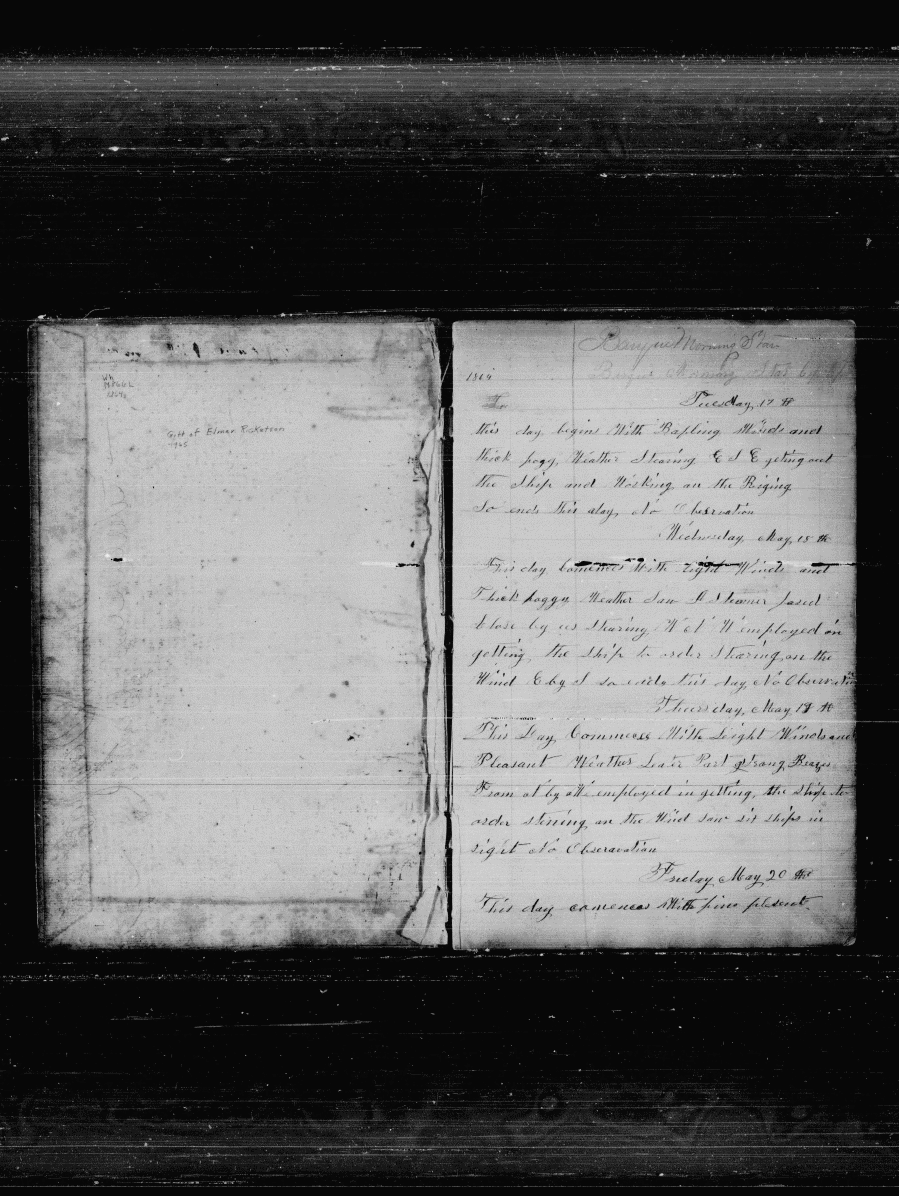 Wh
M8662
1864a
Gift of Elmer Ricketson
1925
Barque Morning Star
Barque Morning Star
1864
Tuesday, 17 th
this day begins With Bafling Winds and
thick fogg, Weather Stearing E S E geting out
the Ship and Working on the Riging
So ends this day, No Observation
Wednesday, May, 18 th
This day Comences With light Winds and
Thick foggy Weather Saw A Steamer pased
Close by us Stearing W employed in
getting, the Ship to order Stearing, on the
Wind E by S so ends this day, No Observation
Thursday, May 19 th
This Day Commeces With Light Winds and
Pleasant Weather Later Part Strong Brezes
From employed in getting, the ship to
order stering on the Wind saw six ships in
sight No Obseravation
Friday May 20 th
This day comences With fine plesent